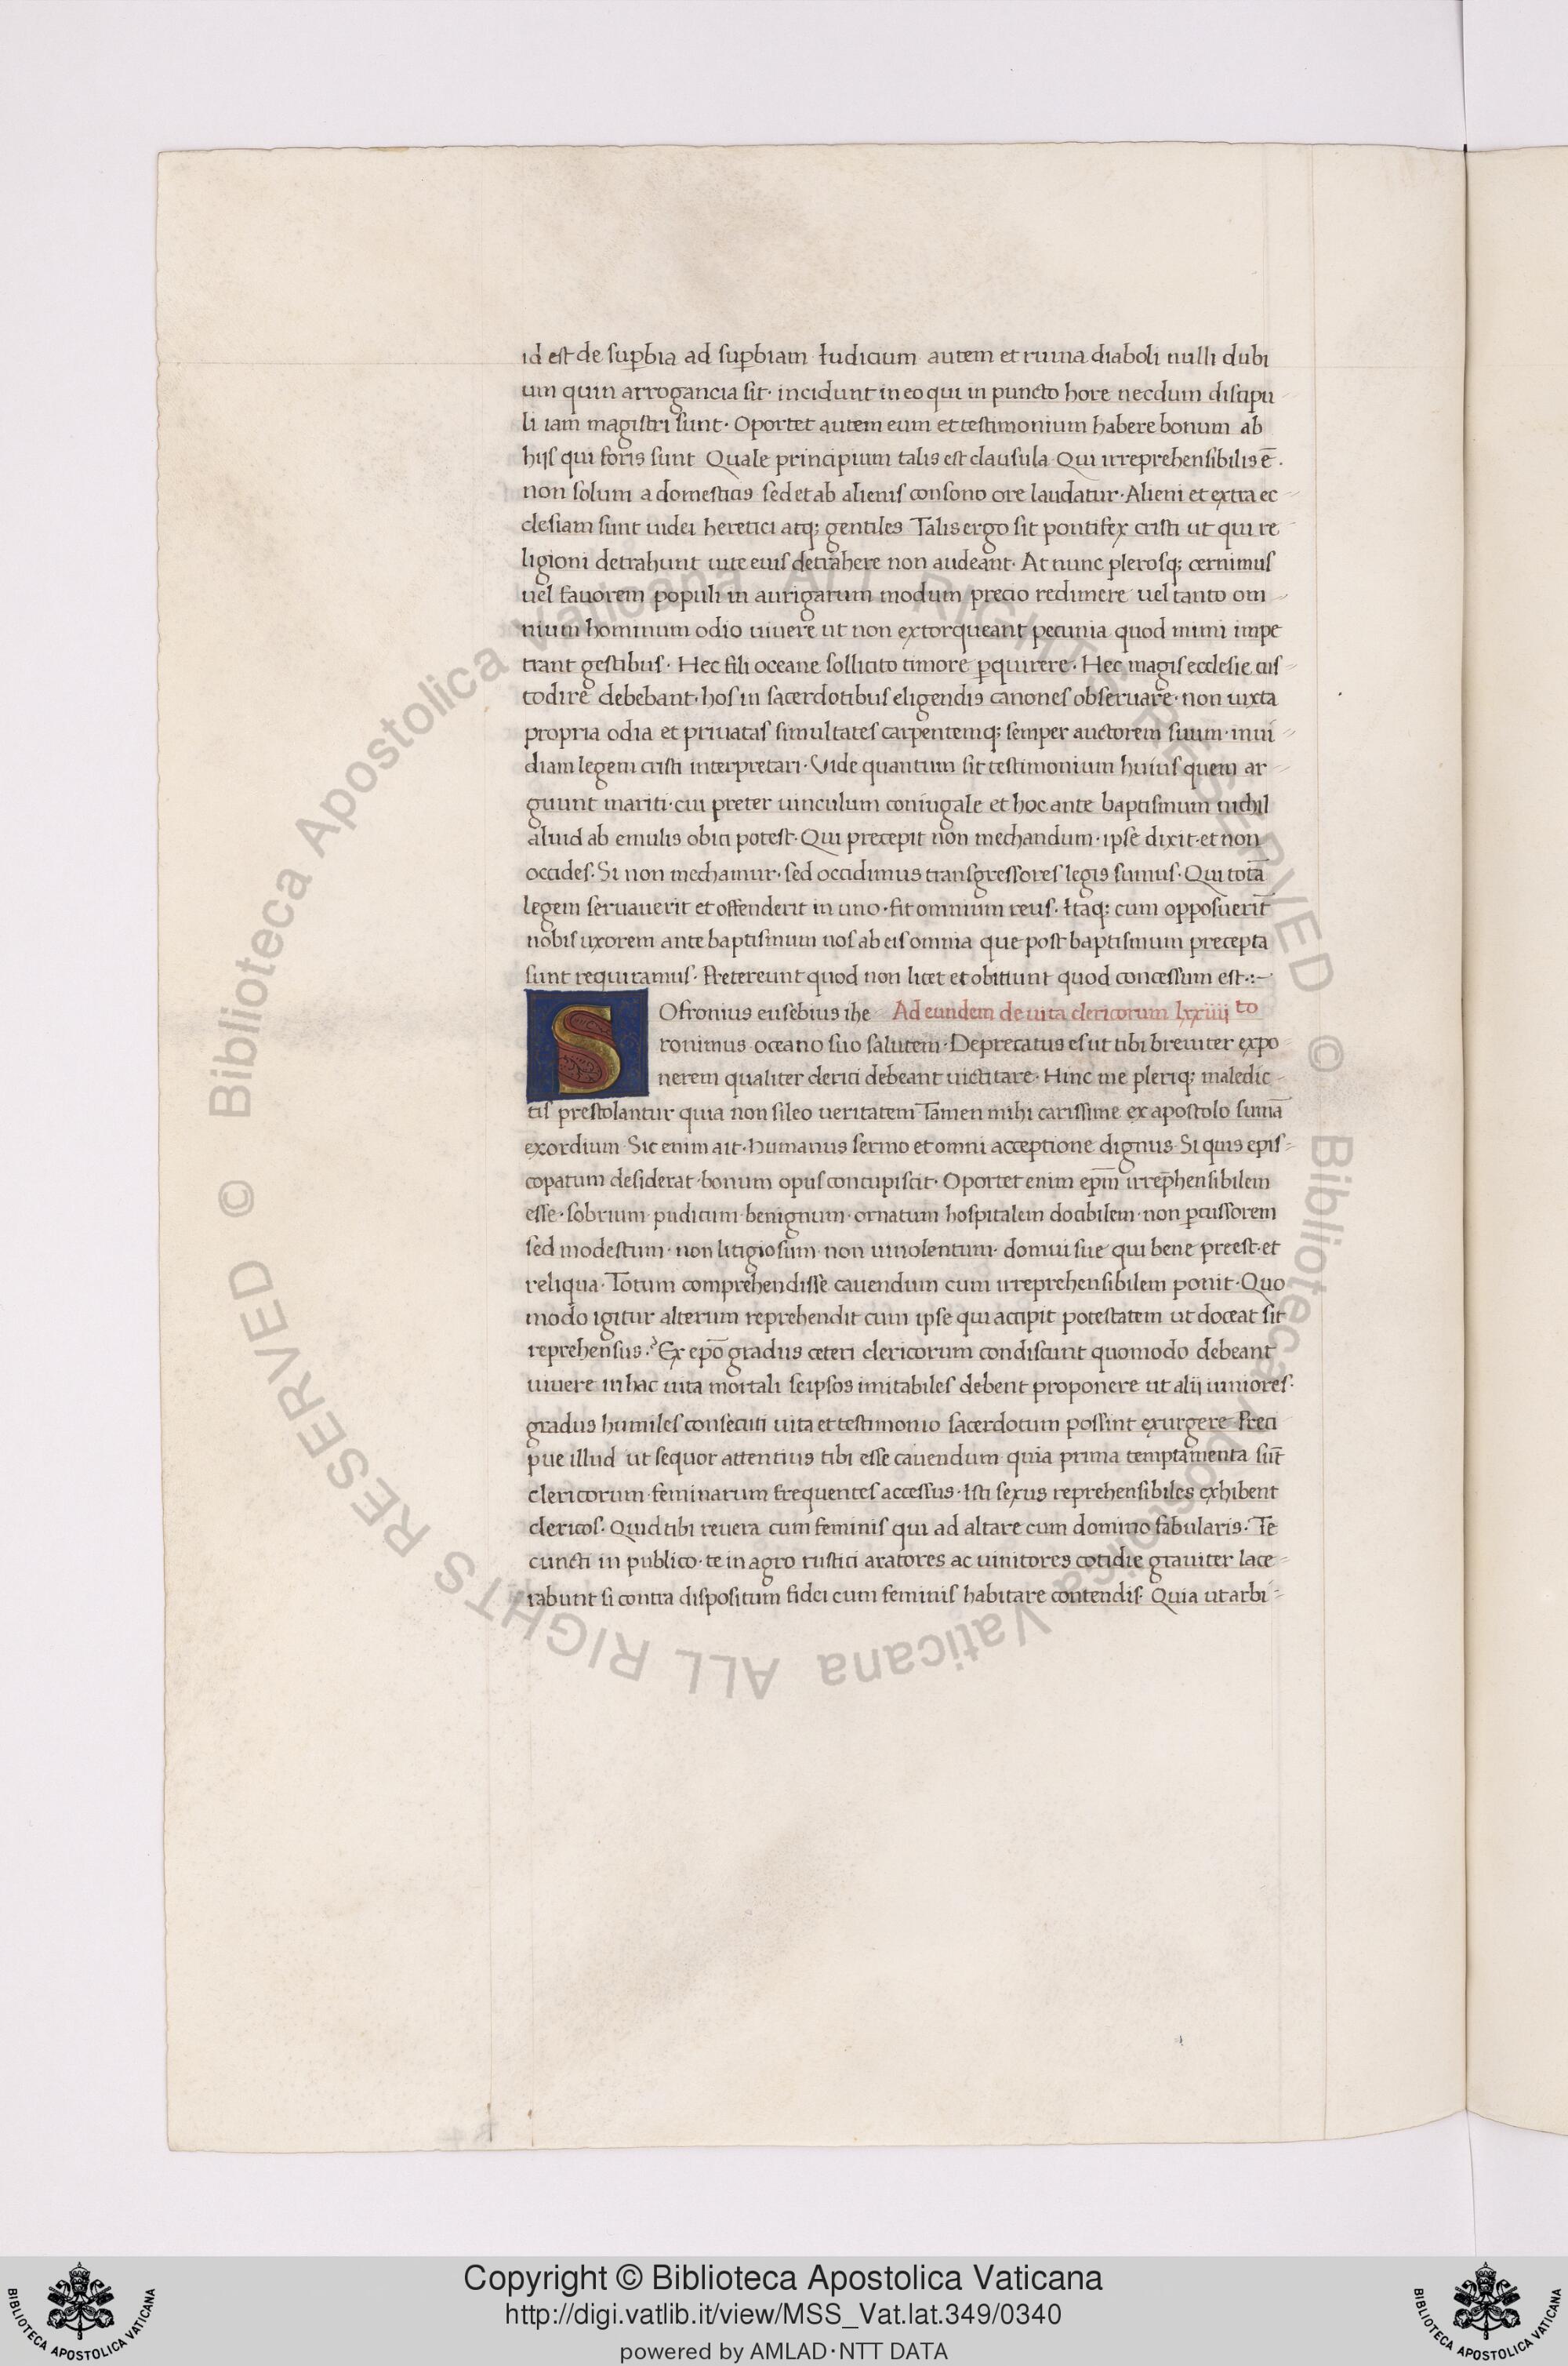 id est de sup̱bia ad sup̱biam Iudicium autem et ruina diaboli nulli dubi
um quin arrogancia sit· incidunt in eo qui in puncto hore necdum discipu
li iam magistri sunt· Oportet autem eum et testimonium habere bonum ab
hijs qui foris sunt Quale principium talis est clausula Qui irreprehensibilis ē·
non solum a domesticis sed et ab alienis consono ore laudatur· Alieni et extra ec
clesiam sunt iudei heretici atq; gentiles Talis ergo sit pontifex cristi ut qui re
ligioni detrahunt uite eius detrahere non audeant· At nunc plerosq; cernimus
uel fauorem populi in aurigarum modum precio redimere uel tanto om
nium hominum odio uiuere ut non extorqueant pecunia quod mimi impe
trant gestibus· Hec fili oceane sollicito timore p̱quirere· Hec magis ecclesie cus
todire debebant· hos in sacerdotibus eligendis canones obseruare· non iuxta
propria odia et priuatas simultates carpentemq; semper auctorem suum· inui
diam legem cristi interpretari· Vide quantum sit testimonium huius quem ar
guunt mariti· cui preter uinculum coniugale et hoc ante baptismum nichil
aliud ab emulis obici potest· Qui precepit non mechandum· ipse dixit· et non
occides· Si non mechamur· sed occidimus transgressores legis sumus· Qui totā
legem seruauerit et offenderit in uno· fit omnium reus· Itaq; cum opposuerit̄
nobis uxorem ante baptismum nos ab eis omnia que post baptismum precepta
sunt requiramus· Pretereunt quod non licet et obitiunt quod concessum est·:~
SOfronius eusebius ihe Ad eundem de uita clericorum lxxiiij to
ronimus oceano suo salutem· Deprecatus es ut tibi breuiter expo
nerem qualiter clerici debeant uictitare· Hinc me pleriq; maledic
tis prestolantur quia non sileo ueritatem Tamen mihi carissime ex apostolo sumā
exordium Sic enim ait· humanus sermo et omni acceptione dignus Si quis epis
copatum desiderat· bonum opus concupiscit· Oportet enim ep̄m irrep̄hensibilem
esse· sobrium pudicum benignum· ornatum hospitalem docibilem· non p̱cussorem
sed modestum· non litigiosum non uinolentum· domui sue qui bene preest· et
reliqua· Totum comprehendisse cauendum cum irreprehensibilem ponit· Quo
modo igitur alterum reprehendit cum ipse qui accipit potestatem ut doceat sit
reprehensus? Ex ep̄o gradus ceteri clericorum condiscunt quomodo debeant
uiuere in hac uita mortali seipsos imitabiles debent proponere ut alij iuniores·
gradus humiles consecuti uita et testimonio sacerdotum possint exurgere Preci
pue illud ut sequor attentius tibi esse cauendum quia prima temptamenta sūt
clericorum feminarum frequentes accessus· Isti sexus reprehensibiles exhibent
clericos· Quid tibi reuera cum feminis qui ad altare cum domino fabularis· Te
cuncti in publico· te in agro rustici aratores ac uinitores cotidie grauiter lace
rabunt si contra dispositum fidei cum feminis habitare contendis· Quia ut arbi
© Biblioteca Apostolica Vaticana ALL RIGHTS RESERVED © Biblioteca Apostolica Vaticana ALL RIGHTS RESERVED
Copyright © Biblioteca Apostolica Vaticana
http://digi.vatlib.it/view/MSS_Vat.lat.349/0340
powered by AMLAD·NTT DATA
BIBLIOTECA APOSTOLICA VATICANA
BIBLIOTECA APOSTOLICA VATICANA